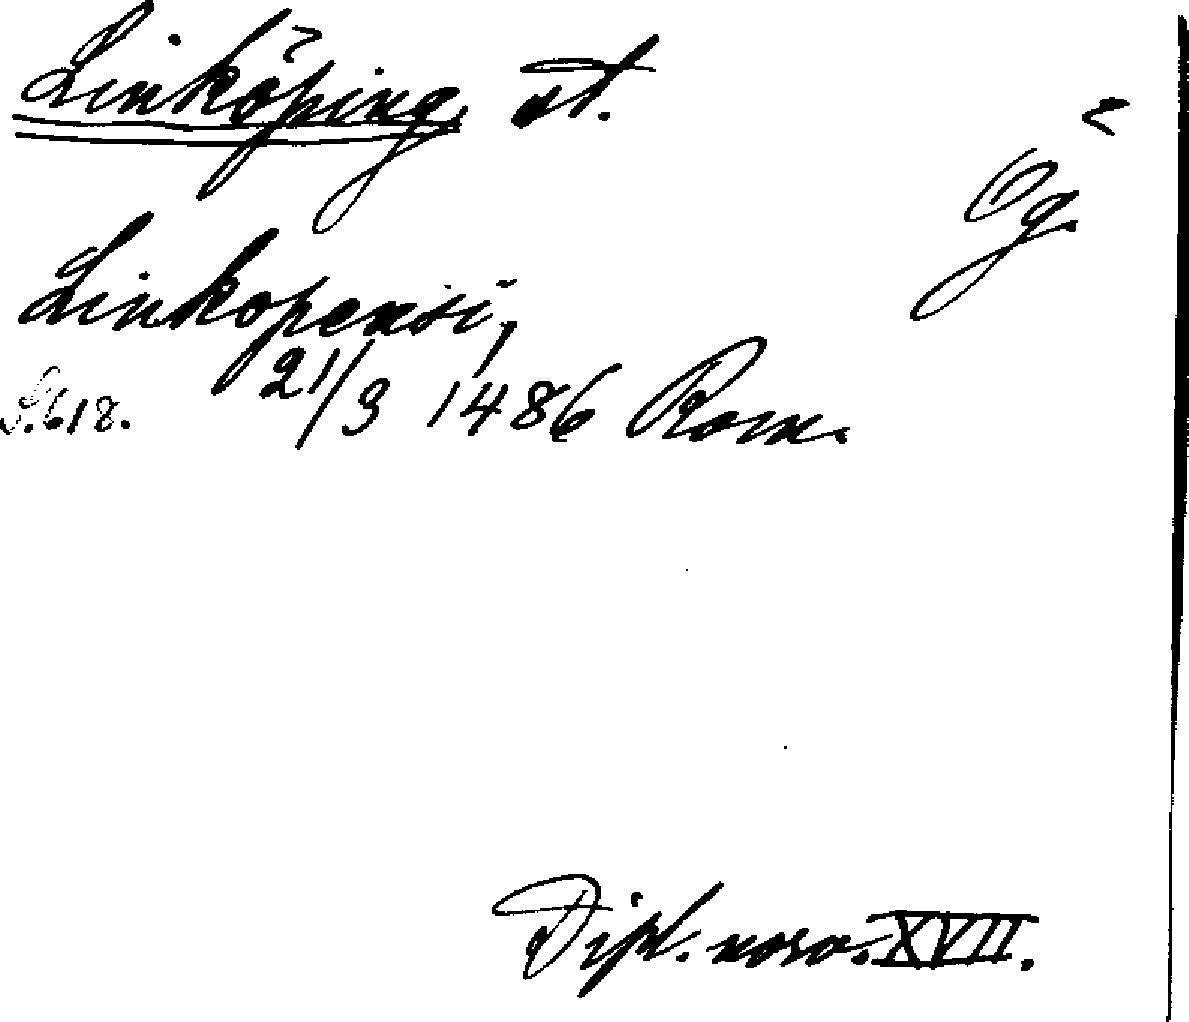 Linköping st.
Ög.
Linkopensi,
S. 618. 21/3 1486 Rom.
Dipl. norv. XVII.